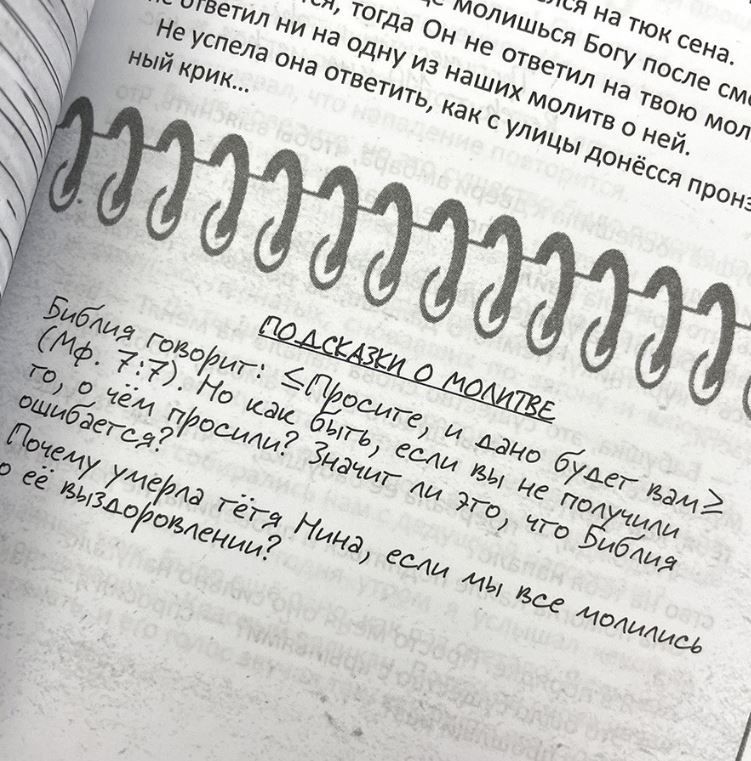 на тюк сена.
тогда Он не ответил на твою
молишься Богу после
ответил ни на одну из наших молитв о ней.
Не успела она ответить, как с улицы донёсся
ный крик...
ПОДСКАЗКИ О МОЛИТВЕ
Библия говорит: ≤Просите, и дано будет вам≥
(Мф. 7:7). Но как быть, если вы не получили
то, о чём просили? Значит ли это, что Библия
ошибается?
Почему умерла тётя Нина, если мы все молились
о её выздоровлении?